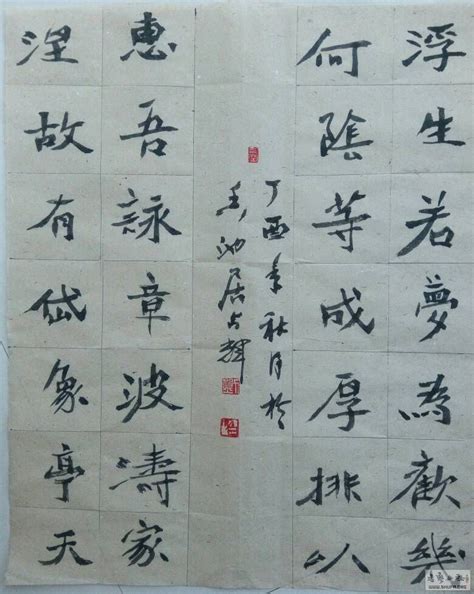 浮生若夢為歡幾
何陰等成厚排以
丁酉年秋月於
池居輝
惠吾詠章波濤家
涅故有岱象亭天